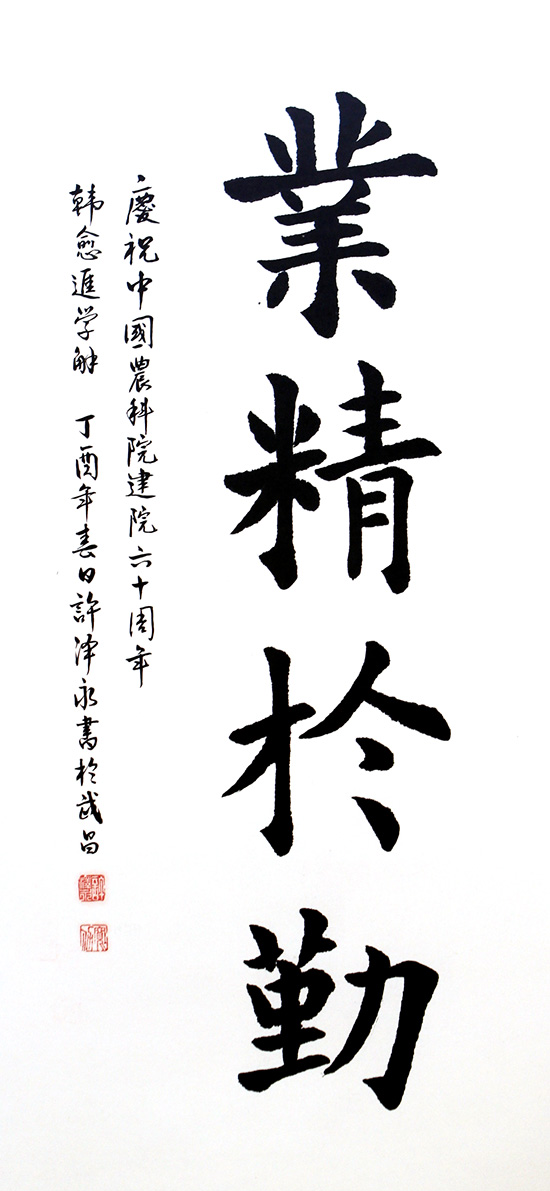 業精於勤
慶祝中國農科院建院六十周年
韩愈進学解 丁酉年春日許泽永書於武昌